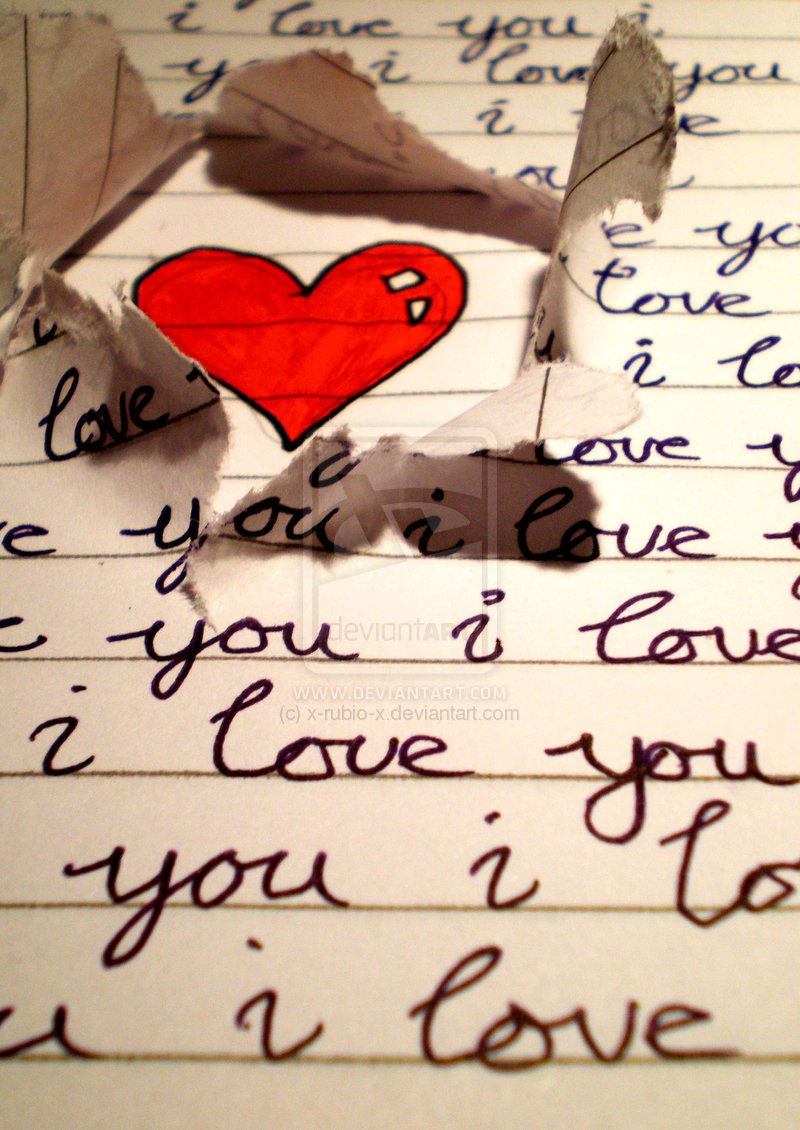 i love you i
i love you
i
you
e yo
love
i lo
love
love y
ve you i love y
e you i love
deviantART
WWW.DEVIANTART.COM
(c) x-rubio-x.deviantart.com
i love you
you i lo
u i love